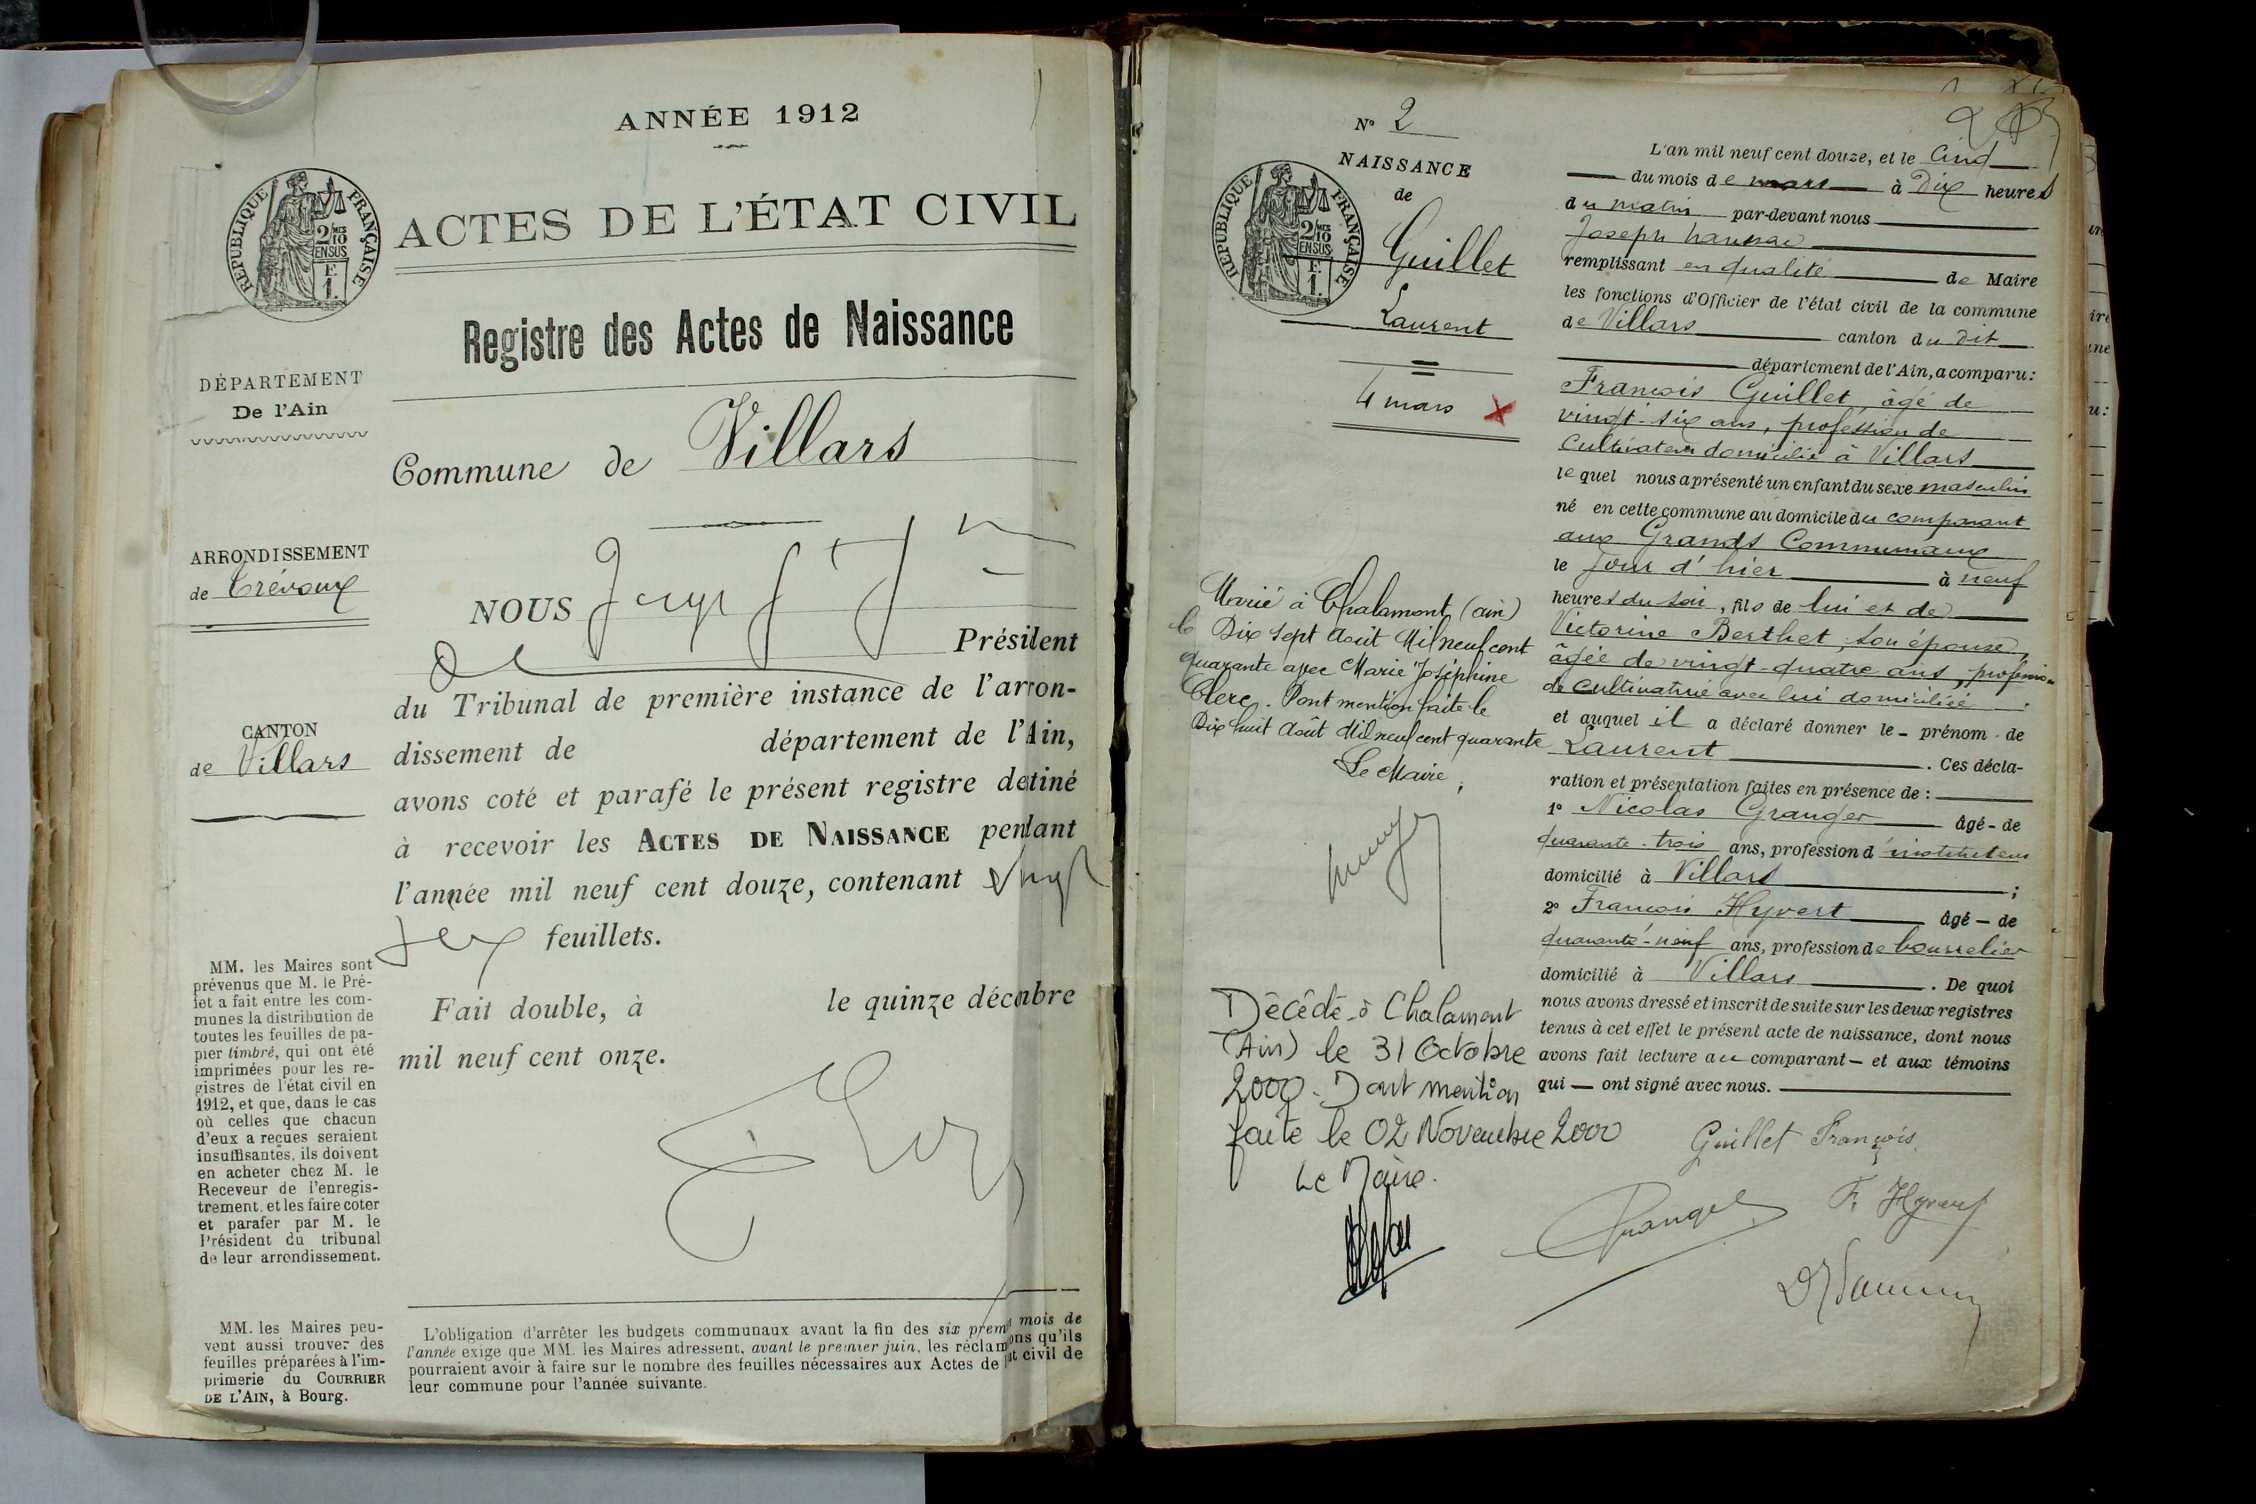 ANNÉE 1912
RÉPUBLIQUE FRANÇAISE
2/10
EN SUS
F.
1.
ACTES DE L'ÉTAT CIVIL
Registre des Actes de Naissance
DÉPARTEMENT
De l'Ain
Commune de Villars
ARRONDISSEMENT
de Trévoux
NOUS
Président
du Tribunal de première instance de l'arron-
dissement de département de l'Ain,
avons coté et parafé le présent registre detiné
à recevoir les ACTES DE NAISSANCE pendant
l'année mil neuf cent douze, contenant vingt
feuillets.
Fait double, à le quinze décembre
mil neuf cent onze.
CANTON
de Villars
MM. les Maires sont
prévenus que M. le Pré-
fet a fait entre les com-
munes la distribution de
toutes les feuilles de pa-
pier timbré, qui ont été
imprimées pour les re-
gistres de l'état civil en
1912, et que, dans le cas
où celles que chacun
d'eux a reçues seraient
insuffisantes, ils doivent
en acheter chez M. le
Receveur de l'enregis-
trement, et les faire coter
et parafer par M. le
Président du tribunal
de leur arrondissement.
MM. les Maires peu-
vent aussi trouver des
feuilles préparées à l'im-
primerie du COURRIER
DE L'AIN, à Bourg.
L'obligation d'arrêter les budgets communaux avant la fin des six prem mois de
l'année exige que MM. les Maires adressent, avant le premier juin, les réclam ons qu'ils
pourraient avoir à faire sur le nombre des feuilles nécessaires aux Actes de at civil de
leur commune pour l'année suivante.
N° 2
NAISSANCE
de
RÉPUBLIQUE FRANÇAISE
2/10
EN SUS
F.
1.
Guillet
Laurent
4 mars
Marié à Chalamont (ain)
le Dix sept Août Mil neuf cent
quarante avec Marie Joséphine
Clerc. Dont mention faite le
Dix huit Août Mil neuf cent quarante
Le Maire,
Décédé à Chalamont
(Ain) le 31 Octobre
2000. Dont mention
faite le 02 Novembre 2000
Le Maire.
L'an mil neuf cent douze, et le cinq
du mois de mars à Dix heures
du matin par-devant nous
Joseph
remplissant en qualité de Maire
les fonctions d'Officier de l'état civil de la commune
de Villars canton du dit
département de l'Ain, a comparu:
François Guillet, âgé de
vingt-six ans, profession de
cultivateur domicilié à Villars
lequel nous a présenté un enfant du sexe masculin
né en cette commune au domicile du comparant
aux Grands Communaux
le jour d'hier à neuf
heures du soir, fils de lui et de
Victorine Berthet, son épouse,
âgée de vingt-quatre ans, profession
de cultivatrice avec lui domiciliée.
et auquel il a déclaré donner le prénom de
Laurent. Ces décla-
ration et présentation faites en présence de :
1° Nicolas Granger âgé de
quarante-trois ans, profession d'instituteur
domicilié à Villars ;
2° François Hyvert âgé de
quarante-neuf ans, profession de bourrelier
domicilié à Villars. De quoi
nous avons dressé et inscrit de suite sur les deux registres
tenus à cet effet le présent acte de naissance, dont nous
avons fait lecture au comparant et aux témoins
qui ont signé avec nous.
Guillet François
Granger
F. Hyvert